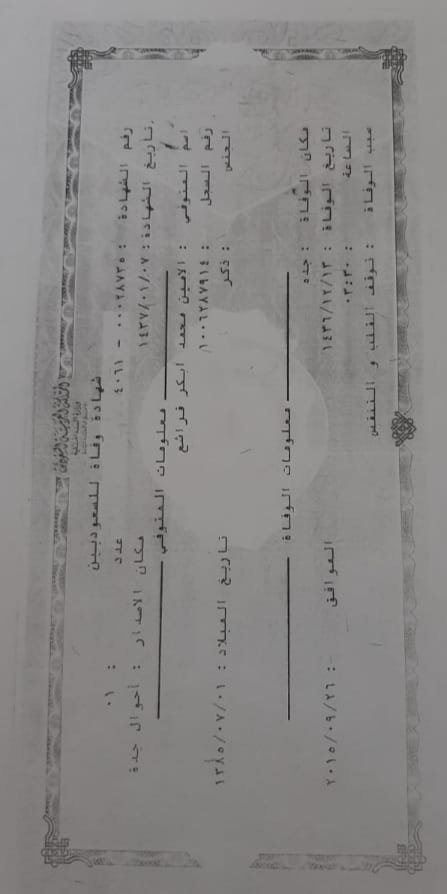 شهادة وفاة للسعوديين
رقم الشهادة : ٠٠٠٢٨٧٣٥ - ٤٠٦١ عدد : ٠١
تاريخ الشهادة : ١٤٣٧/٠١/٠٧ مكان الاصدار : أحوال جدة
معلومات المتوفي
اسم المتوفي : الامين محمد ابكر قرائع
رقم السجل : ١٠٠٦٢٨٧٩١٤ تاريخ الميلاد : ١٣٨٥/٠٧/٠١
الجنس : ذكر
معلومات الوفاة
مكان الوفاة : جده
تاريخ الوفاة : ١٤٣٦/١٢/١٣ الموافق : ٢٠١٥/٠٩/٢٦
الساعة : ٠٣:٣٠
سبب الوفاة : توقف القلب و التنفس